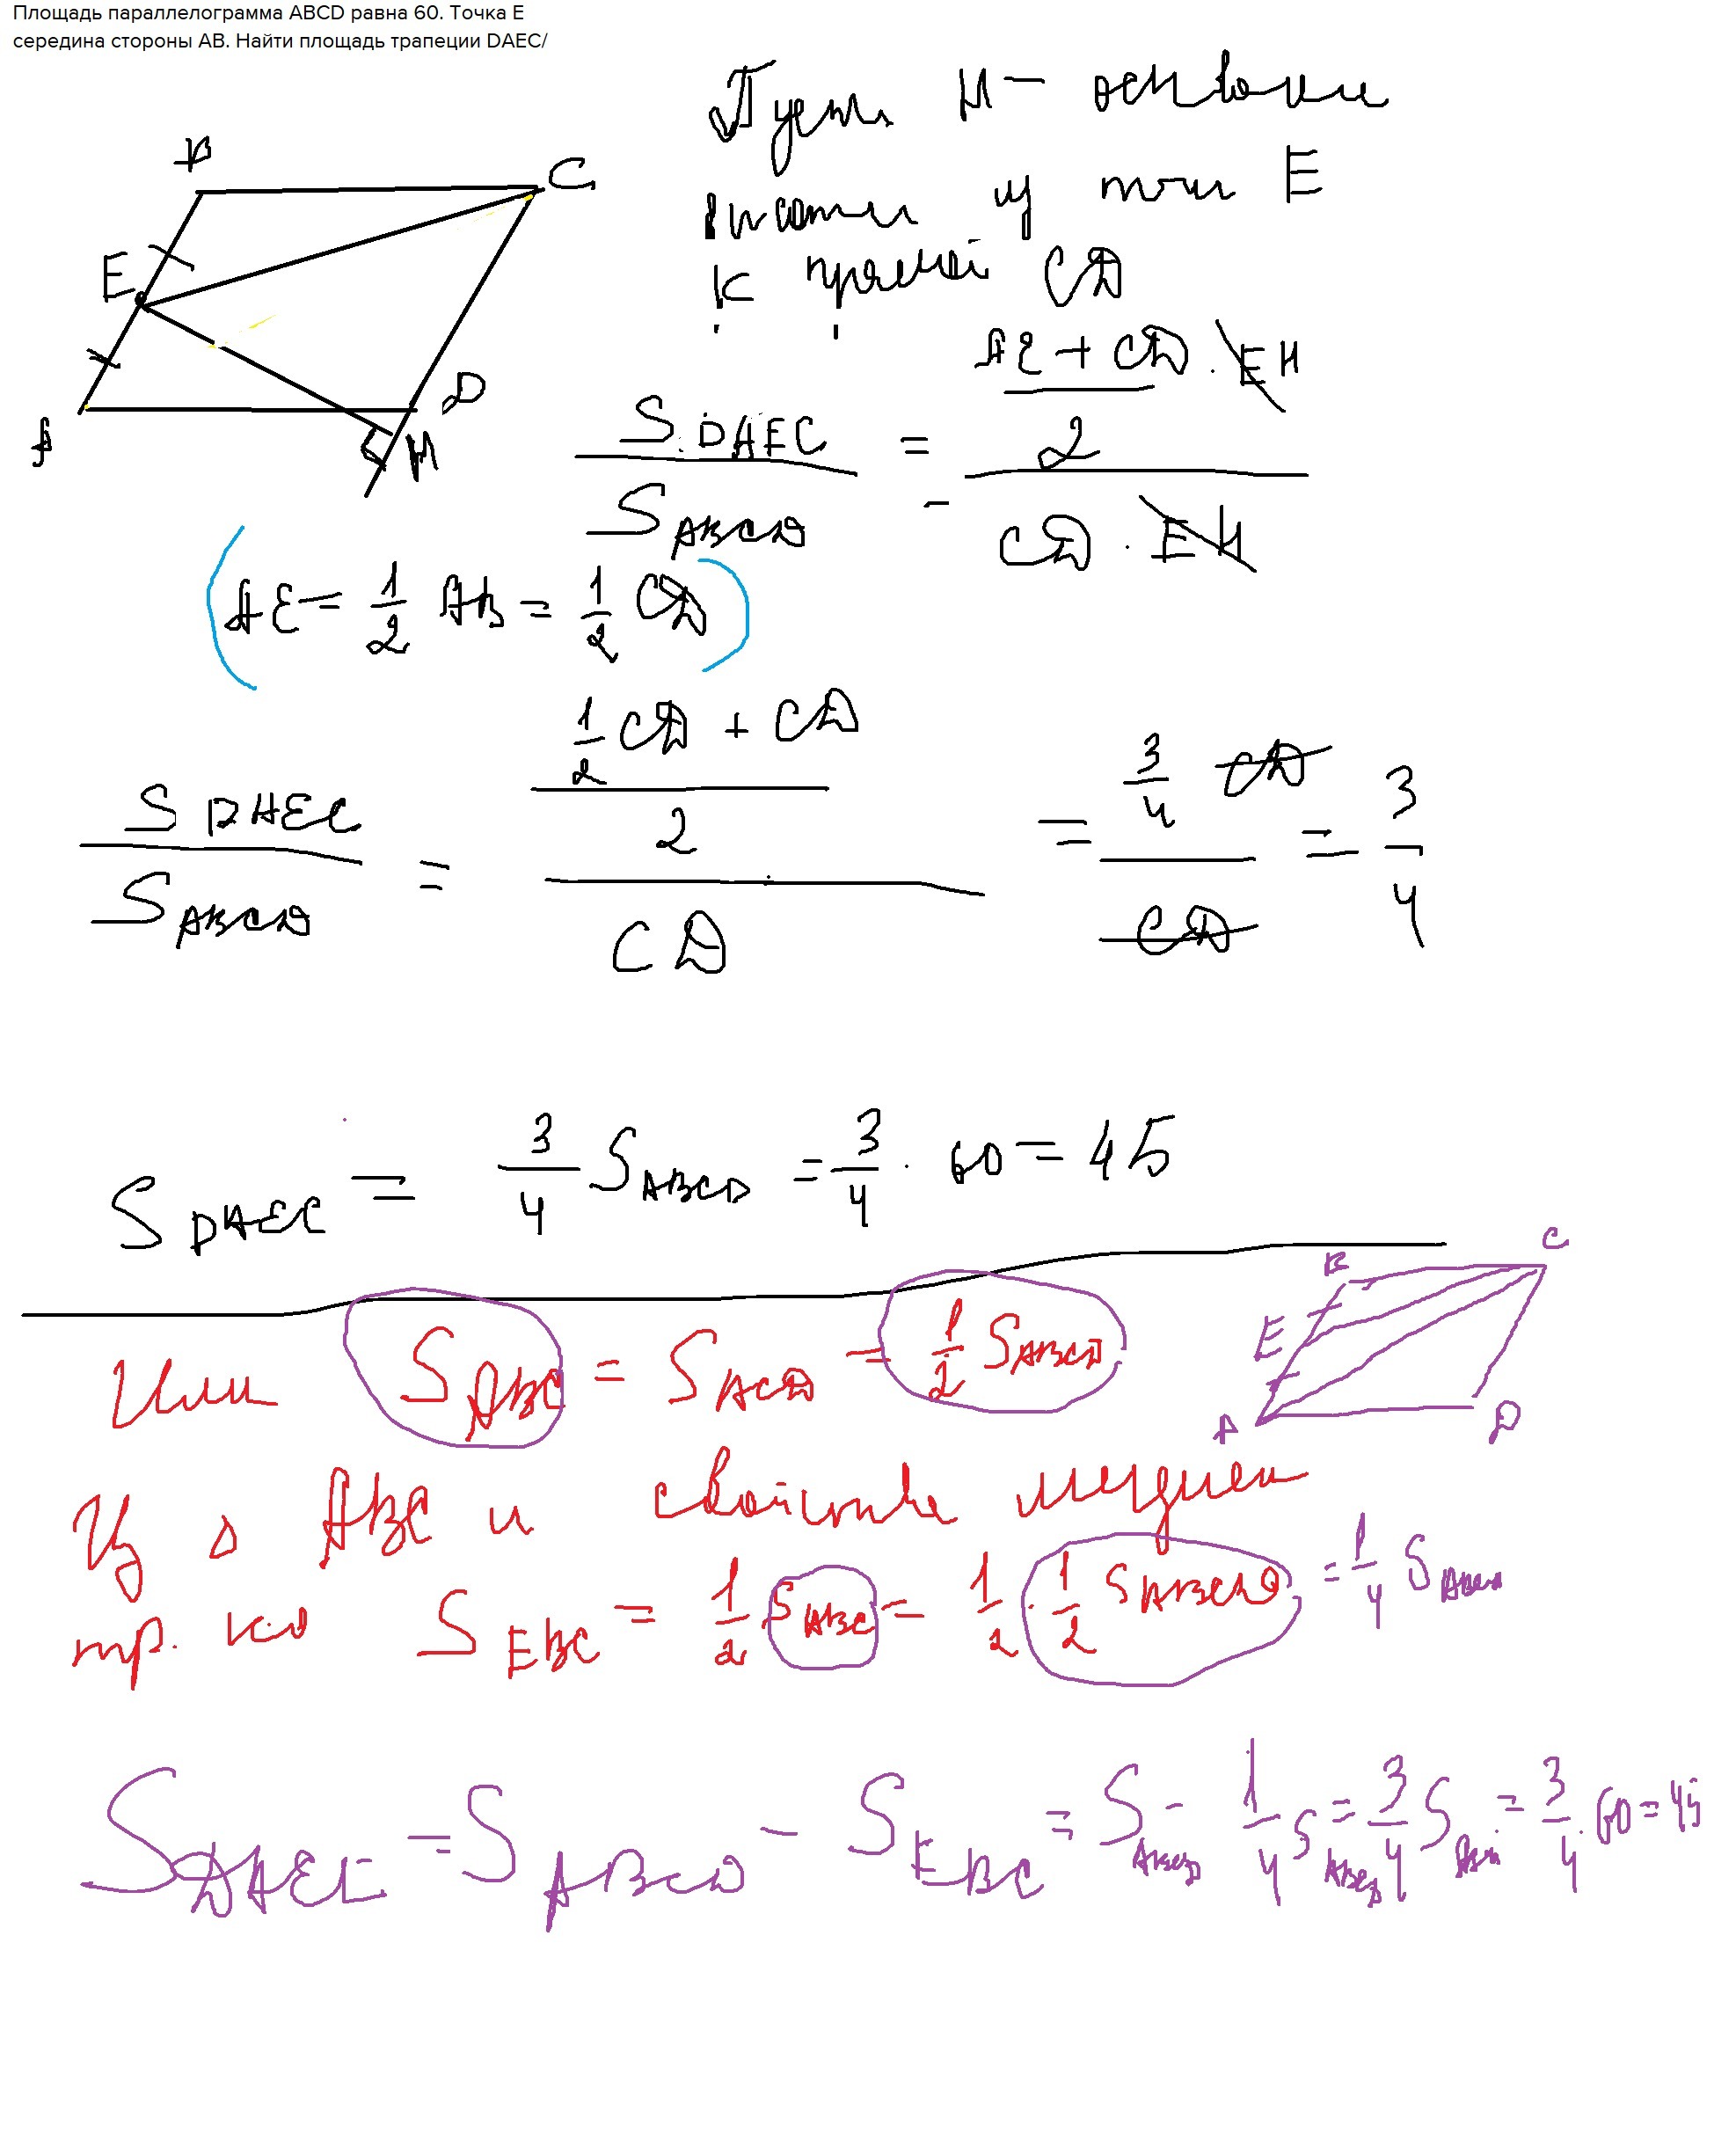 Площадь параллелограмма ABCD равна 60. Точка E
середина стороны AB. Найти площадь трапеции DAEC/
B
C
E
D
A
H
Пусть H — основание
высоты из точки E
к прямой CD
S DAEC / S ABCD = ((AE + CD) / 2 · EH) / (CD · EH)
(AE = 1/2 AB = 1/2 CD)
S DAEC / S ABCD = ((1/2 CD + CD) / 2) / CD = (3/4 CD) / CD = 3/4
S DAEC = 3/4 S ABCD = 3/4 · 60 = 45
B
C
E
A
D
Или S ABC = S ACD = 1/2 S ABCD
Из Δ ABC и свойства медианы
тр. S EBC = 1/2 S ABC = 1/2 · 1/2 S ABCD = 1/4 S ABCD
S DAEC = S ABCD − S EBC = S ABCD − 1/4 S ABCD = 3/4 S ABCD = 3/4 · 60 = 45